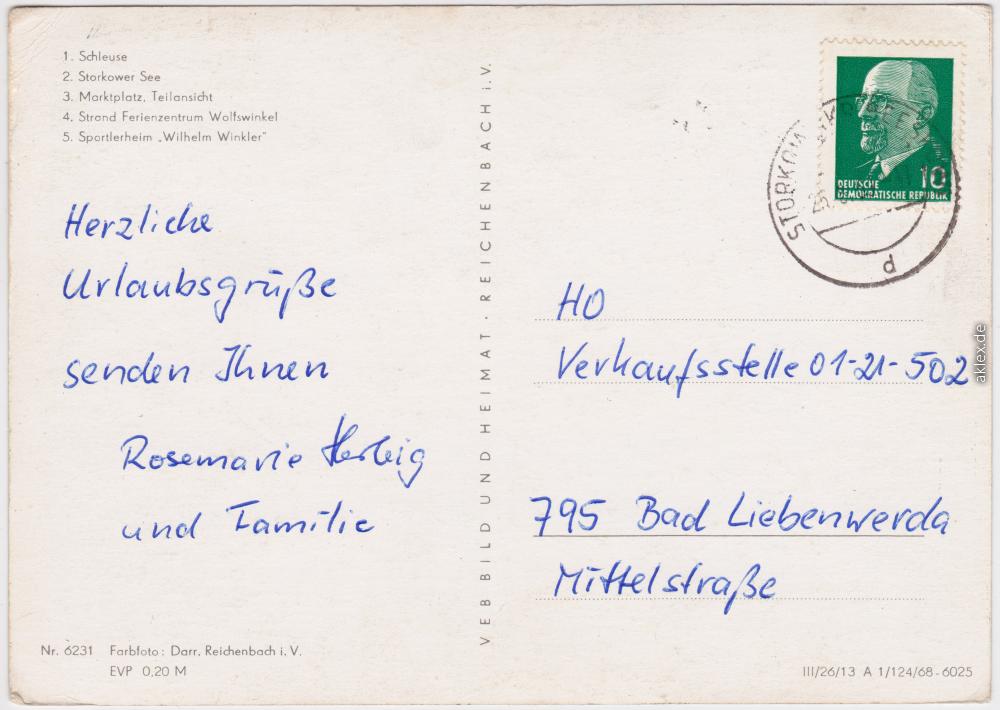 1. Schleuse
2. Storkower See
3. Marktplatz, Teilansicht
4. Strand Ferienzentrum Wolfswinkel
5. Sportlerheim „Wilhelm Winkler"
Herzliche
Urlaubsgrüße
senden Ihnen
Rosemarie Herbig
und Familie
Nr. 6231 Farbfoto: Darr, Reichenbach i. V.
EVP 0,20 M
VEB BILD UND HEIMAT · REICHENBACH i. V.
10
DEUTSCHE
DEMOKRATISCHE REPUBLIK
STORKOW
d
HO
Verkaufsstelle 01-21-502
795 Bad Liebenwerda
Mittelstraße
III/26/13 A 1/124/68-6025
aklex.de